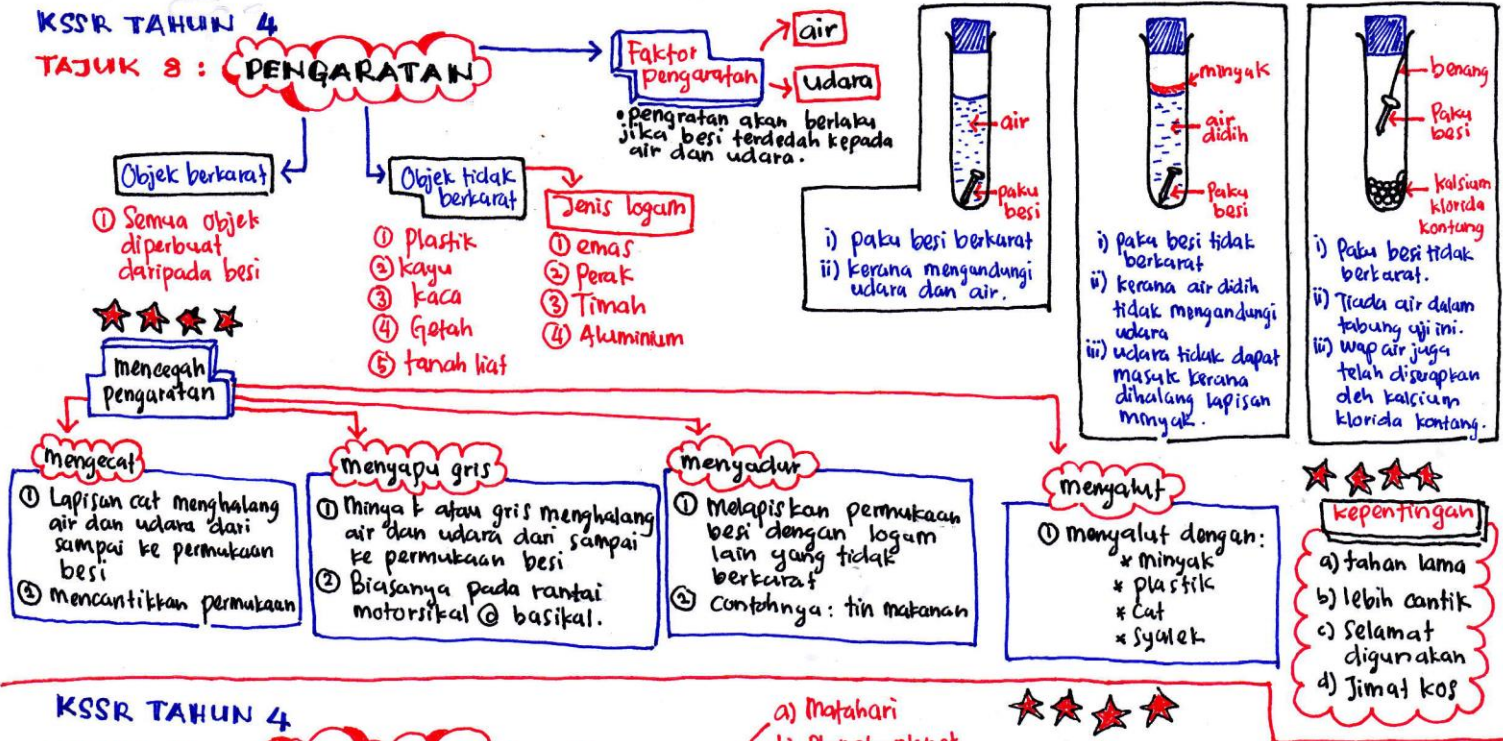 KSSR TAHUN 4
TAJUK 8 : PENGARATAN
Faktor
pengaratan
air
udara
• pengratan akan berlaku
jika besi terdedah kepada
air dan udara.
Objek berkarat
① Semua objek
diperbuat
daripada besi
Objek tidak
berkarat
① Plastik
② kayu
③ kaca
④ Getah
⑤ tanah liat
Jenis logam
① emas
② Perak
③ Timah
④ Aluminium
air
paku
besi
i) paku besi berkarat
ii) kerana mengandungi
udara dan air.
minyak
air
didih
Paku
besi
i) paku besi tidak
berkarat
ii) kerana air didih
tidak mengandungi
udara
iii) udara tidak dapat
masuk kerana
dihalang lapisan
minyak.
benang
Paku
besi
kalsium
klorida
kontang
i) Paku besi tidak
berkarat.
ii) Tiada air dalam
tabung uji ini.
iii) wap air juga
telah diserapkan
oleh kalsium
klorida kontang.
mencegah
pengaratan
mengecat
① Lapisan cat menghalang
air dan udara dari
sampai ke permukaan
besi
② mencantikkan permukaan
menyapu gris
① Minyak atau gris menghalang
air dan udara dari sampai
ke permukaan besi
② Biasanya pada rantai
motorsikal @ basikal.
menyadur
① melapiskan permukaan
besi dengan logam
lain yang tidak
berkarat
② Contohnya: tin makanan
menyalut
① menyalut dengan:
* minyak
* plastik
* cat
* syalek
kepentingan
a) tahan lama
b) lebih cantik
c) Selamat
digunakan
d) Jimat kos
KSSR TAHUN 4
a) Matahari